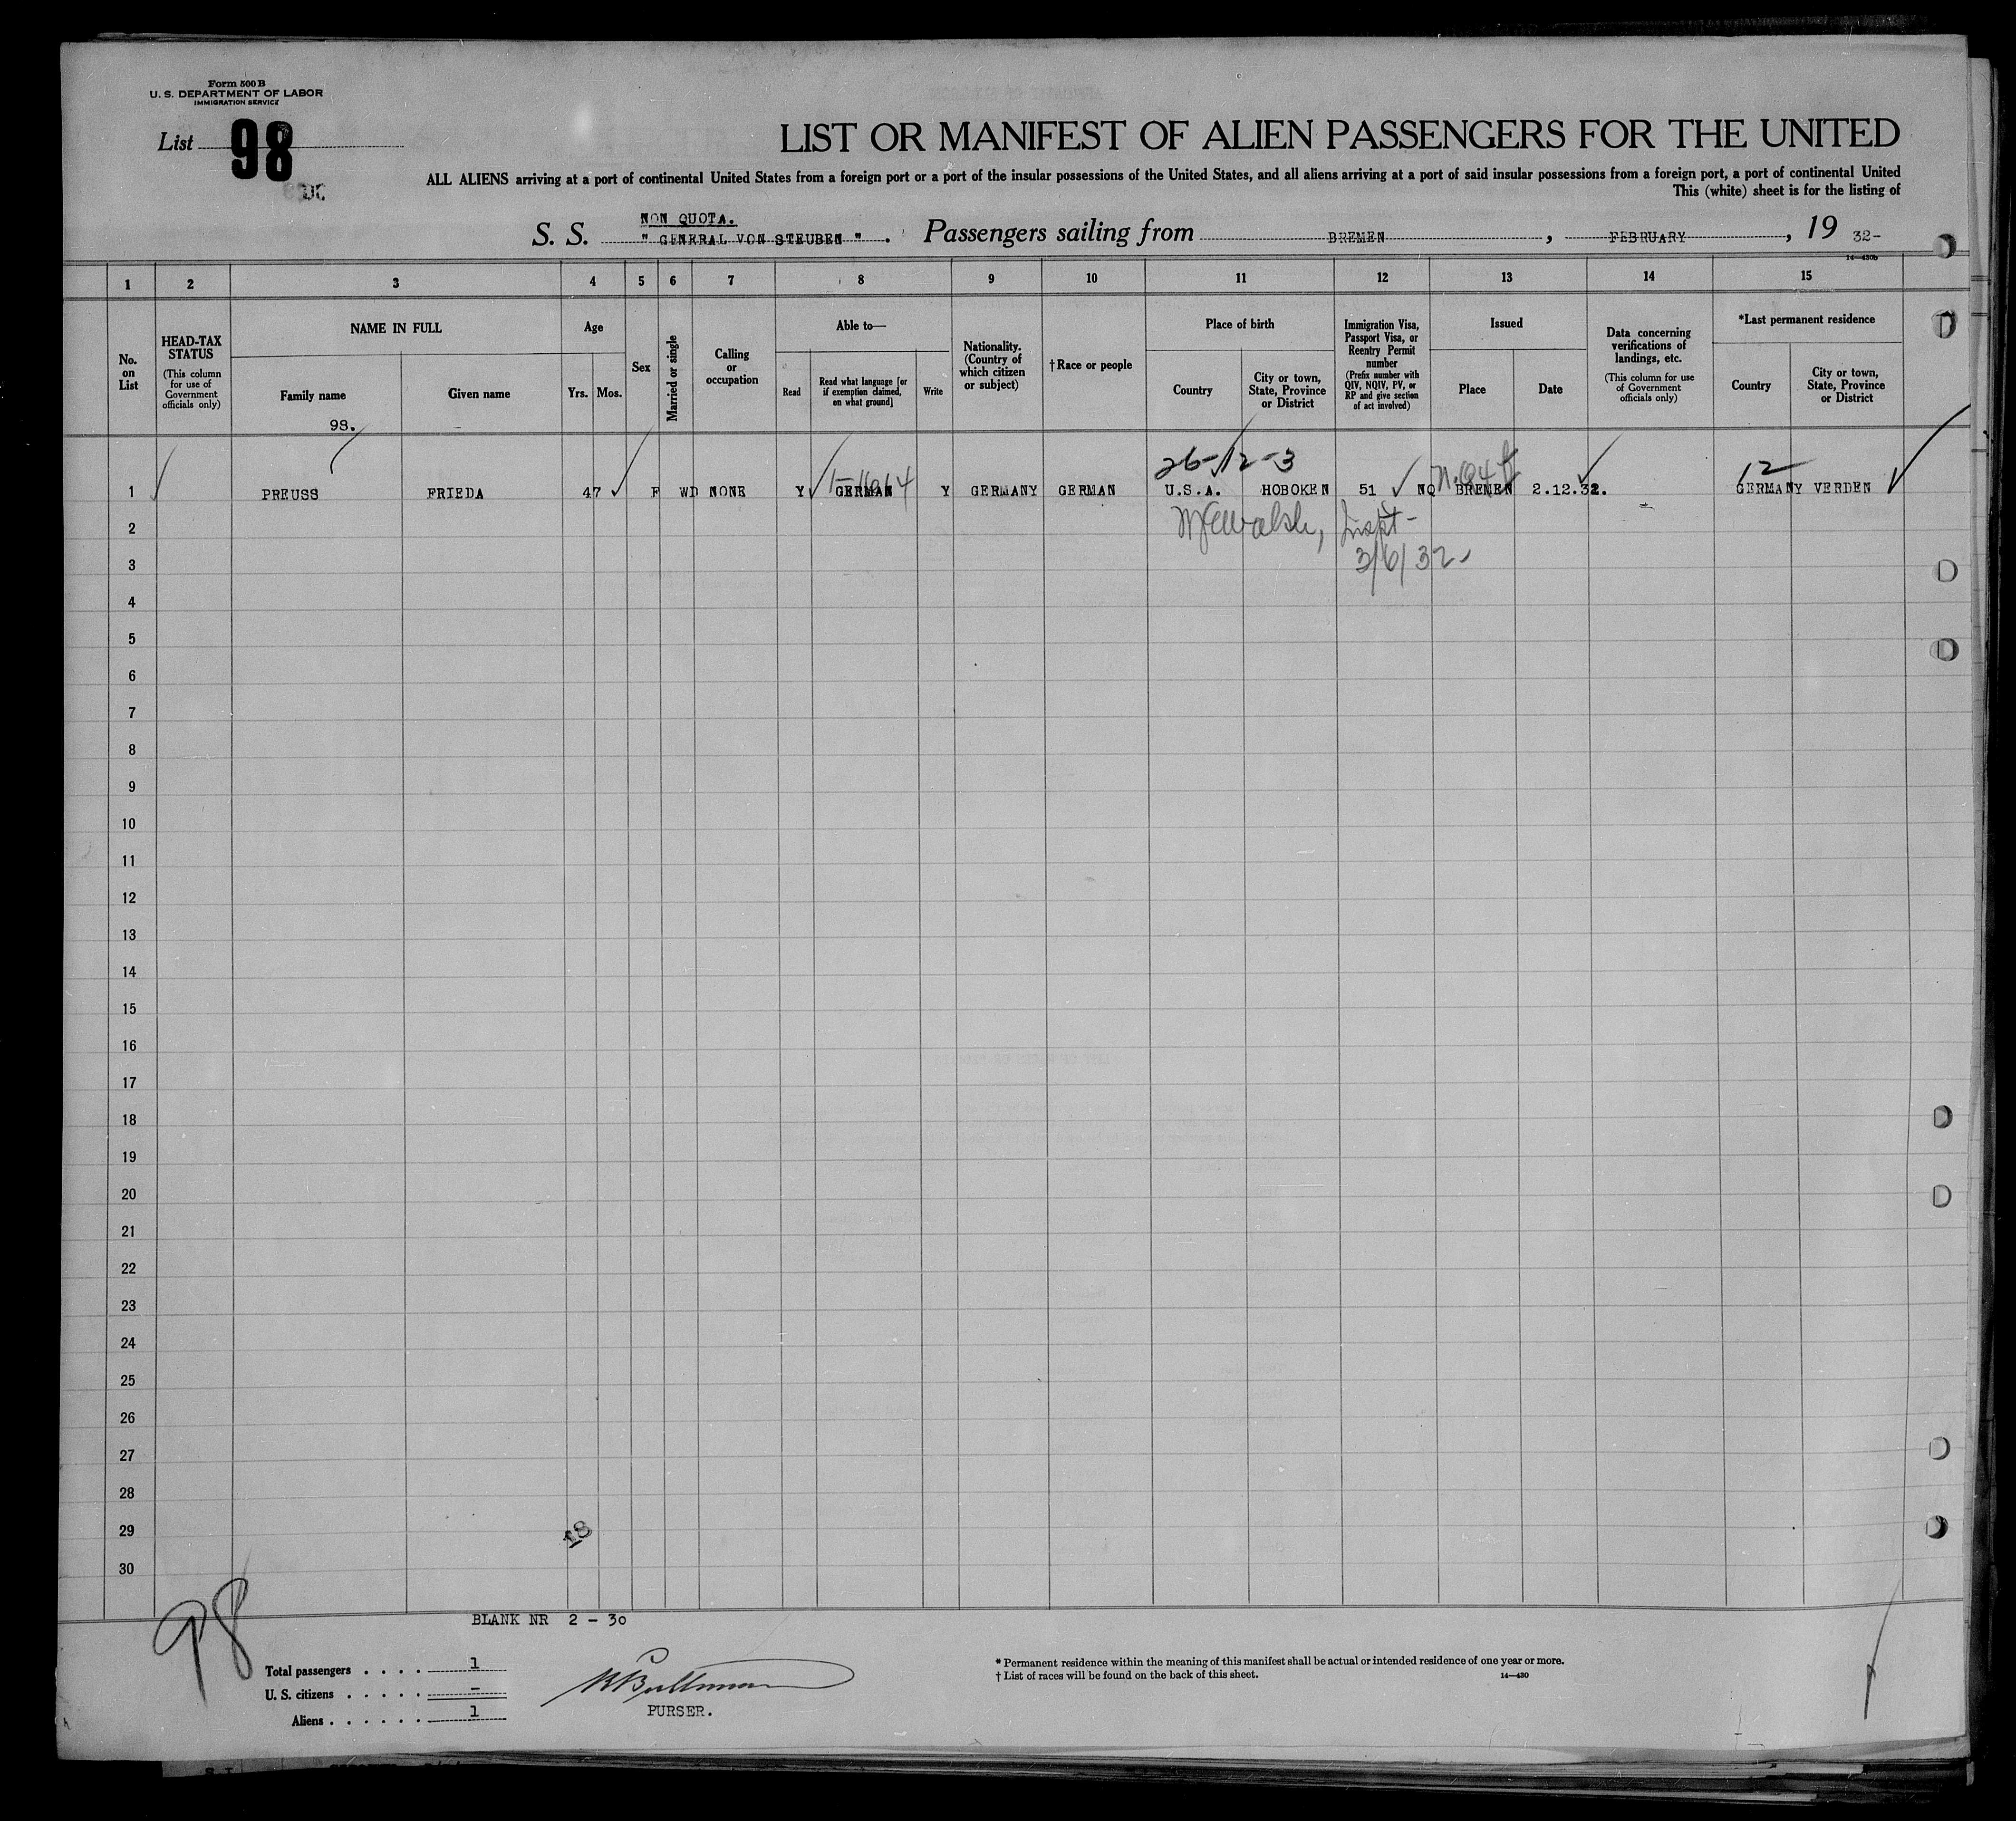 Form 500 B
U. S. DEPARTMENT OF LABOR
IMMIGRATION SERVICE
List 98
LIST OR MANIFEST OF ALIEN PASSENGERS FOR THE UNITED
ALL ALIENS arriving at a port of continental United States from a foreign port or a port of the insular possessions of the United States, and all aliens arriving at a port of said insular possessions from a foreign port, a port of continental United
This (white) sheet is for the listing of
NON QUOTA.
S. S. " GENERAL VON STEUBEN " . Passengers sailing from BREMEN , FEBRUARY , 19 32-
14—430b
1 2 3 4 5 6 7 8 9 10 11 12 13 14 15
No. on List
HEAD-TAX STATUS
(This column for use of Government officials only)
NAME IN FULL
Family name
Given name
98.
Age
Yrs. Mos.
Sex
Married or single
Calling or occupation
Able to—
Read
Read what language [or if exemption claimed, on what ground]
Write
Nationality. (Country of which citizen or subject)
† Race or people
Place of birth
Country
City or town, State, Province or District
Immigration Visa, Passport Visa, or Reentry Permit number
(Prefix number with QIV, NQIV, PV, or RP and give section of act involved)
Issued
Place
Date
Data concerning verifications of landings, etc.
(This column for use of Government officials only)
*Last permanent residence
Country
City or town, State, Province or District
26-12-3
12
1 PREUSS FRIEDA 47 F WD NONE Y GERMAN Y GERMANY GERMAN U.S.A. HOBOKEN 51 NQ BREMEN 2.12.32. GERMANY VERDEN
2
Walsh, Inspt-
3
3/6/32
4
5
6
7
8
9
10
11
12
13
14
15
16
17
18
19
20
21
22
23
24
25
26
27
28
29
30
98
BLANK NR 2 - 30
Total passengers . . . . 1
U. S. citizens . . . . . -
Aliens . . . . . . 1
PURSER.
* Permanent residence within the meaning of this manifest shall be actual or intended residence of one year or more.
† List of races will be found on the back of this sheet.
14—430